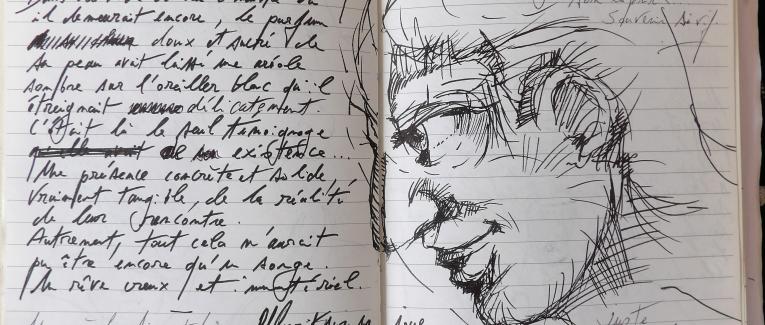 il demeurait encore, le parfum
doux et sucré de
sa peau avait laissé une auréole
sombre sur l'oreiller blanc qu'il
étreignait délicatement.
C'était là le seul témoignage
de son existence...
Une présence concrète et solide
vraiment tangible, de la réalité
de leur rencontre.
Autrement, tout cela n'aurait
pu être encore qu'un songe.
Un rêve creux et immatériel.
Souvenir